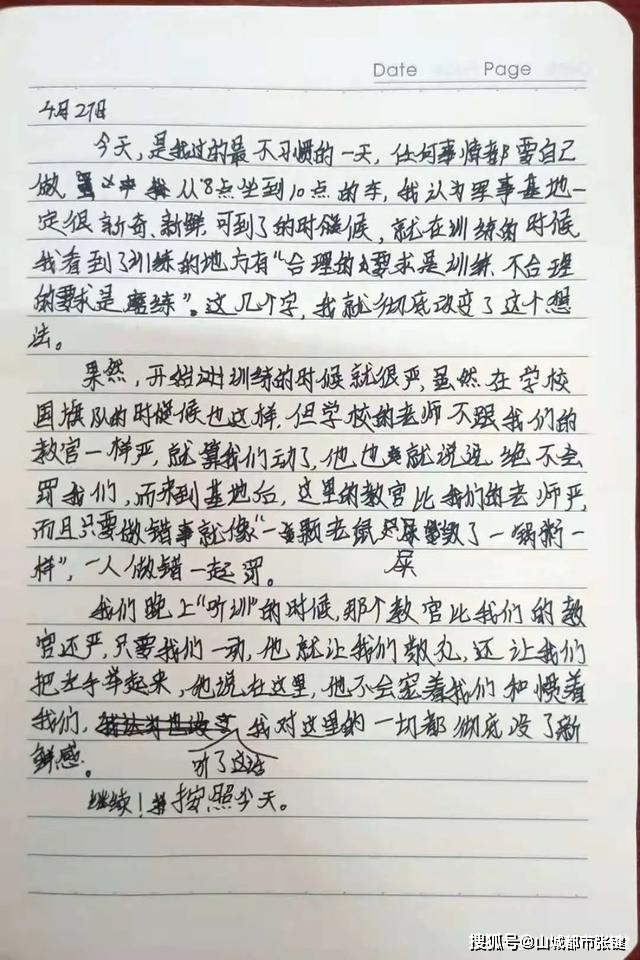 Date Page
4月27日
今天,是我过的最不习惯的一天,任何事情都要自己
做 从8点坐到10点的车,我认为军事基地一
定很新奇、新鲜,可到了的时候,就在训练的时候
我看到了训练的地方有“合理的要求是训练,不合理
的要求是磨练”。这几个字,我就彻底改变了这个想
法。
果然,开始训练的时候就很严,虽然在学校
国旗队的时候也这样,但学校的老师不跟我们的
教官一样严,就算我们动了,他也就说说,绝不会
罚我们,而来到基地后,这里的教官比我们的老师严,
而且只要做错事就像“一颗老鼠屎 了一锅粥一
样”,一人做错一起罚。
我们晚上“听训”的时候,那个教官比我们的教
官还严,只要我们一动,他就让我们 ,还让我们
把左手举起来,他说在这里,他不会宠着我们和惯着
我们,听了这话我对这里的一切都彻底没了新
鲜感。
继续!按照今天。
搜狐号@山城都市张键